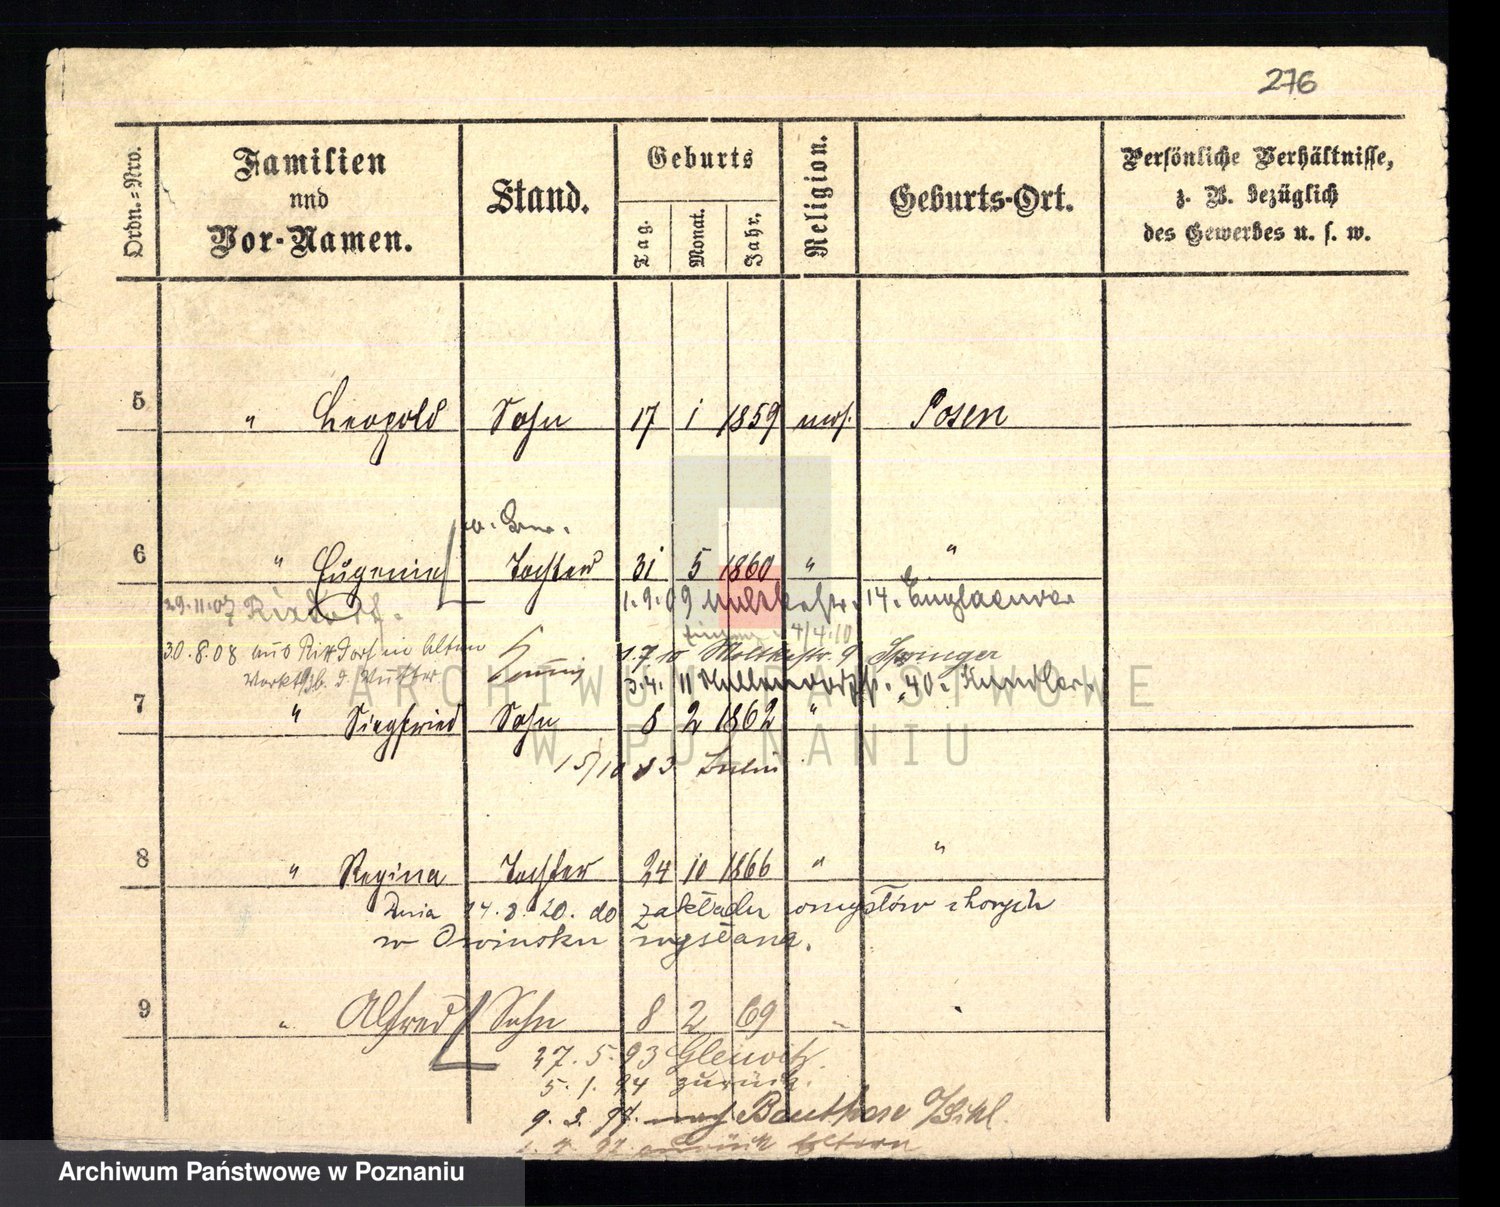 276
Ordn.=Nro.
Familien
und
Vor-Namen.
Stand.
Geburts
Tag.
Monat.
Jahr.
Religion.
Geburts-Ort.
Persönliche Verhältnisse,
z. B. bezüglich
des Gewerbes u. s. w.
5 " Leopold Sohn 17 1 1859 mos. Posen
6 " Eugenie Tochter 31 5 1860 " "
29.11.07 Rixdorf.
1.9.09 14.
4/4.10
30.8.08 aus Rixdorf in Eltern
1.7.10 Moltkestr. 9 Springer
3.4.11 40.
7 " Siegfried Sohn 8 2 1862 "
15/10 83 Berlin
8 " Regina Tochter 24 10 1866 " "
Dnia 14.8.20. do zakładu umysłowo chorych
w Owinsku wysłana.
9 " Alfred Sohn 8 2 69 "
27.5.93 Gleiwitz.
5.1.94 zurück.
9.3.97. nach Beuthen O/Schl.
zurück Eltern
ARCHIWUM PAŃSTWOWE
W POZNANIU
Archiwum Państwowe w Poznaniu